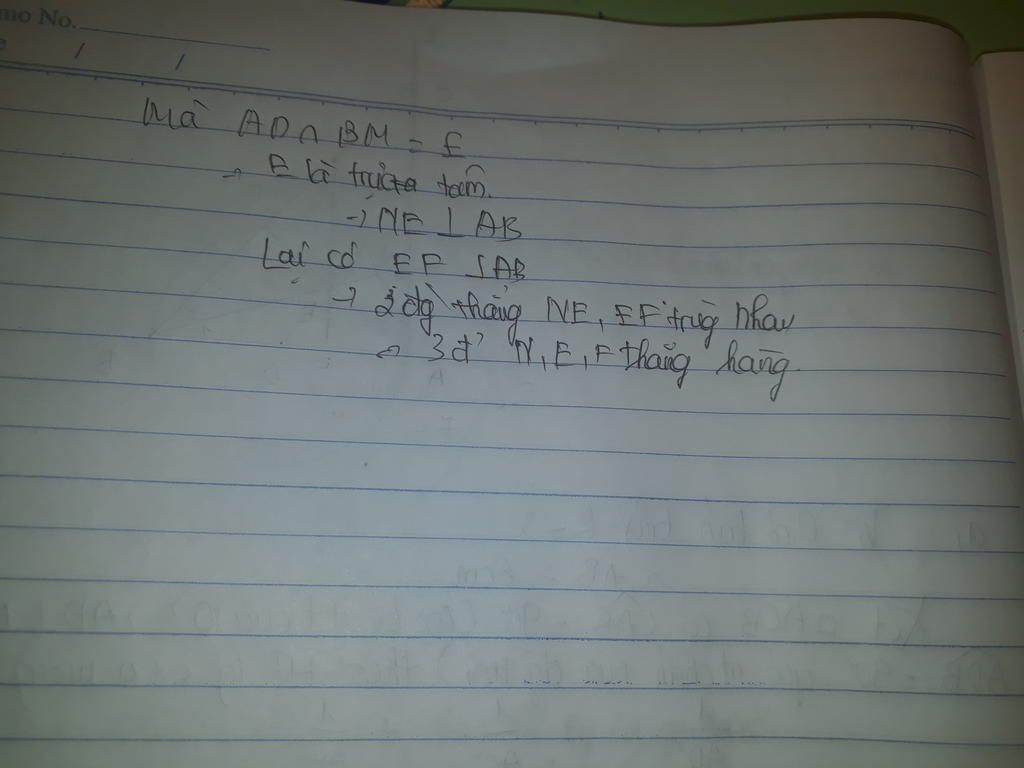 mo No.
Mà AD∩BM = E
→ E là trực tâm.
→ NE ⊥ AB
Lại có EF ⊥ AB
→ 2 đg thẳng NE, EF trùg nhau
⇔ 3 đ' N, E, F thẳng hàng.